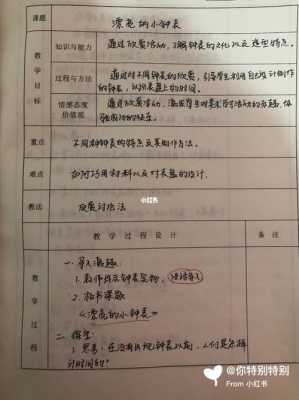 课题
漂亮的小钟表
教学目标
知识与能力
通过欣赏活动，了解钟表的文化以及造型特点。
过程与方法
通过对不同钟表的欣赏，引导学生利用自己设计制作
的钟表，认识表盘上的时间。
情感态度
价值观
通过欣赏活动，激发学生对美术学习活动的兴趣，体
验成功的快乐。
重点
不同种钟表的特点及其制作方法。
难点
如何巧用材料以及对表盘的设计。
小红书
教法
欣赏讨论法
教学过程设计
备注
教学过程
一、导入激趣：
1. 教师出示钟表实物，
2. 板书课题
《漂亮的小钟表》
二、探究：
1. 思考：在没有出现钟表以前，人们是怎样
计时间的？
@你特别特别
From 小红书